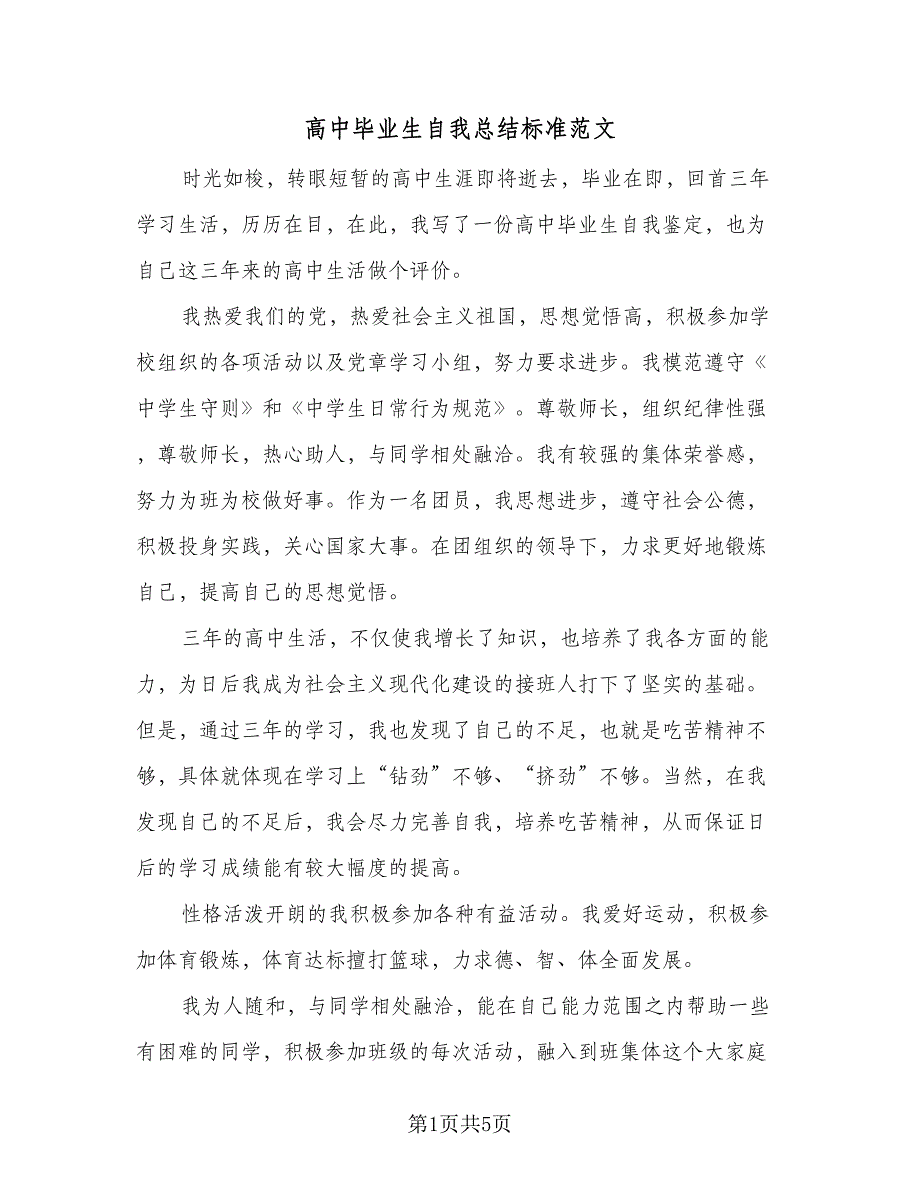 高中毕业生自我总结标准范文
时光如梭，转眼短暂的高中生涯即将逝去，毕业在即，回首三年
学习生活，历历在目，在此，我写了一份高中毕业生自我鉴定，也为
自己这三年来的高中生活做个评价。
我热爱我们的党，热爱社会主义祖国，思想觉悟高，积极参加学
校组织的各项活动以及党章学习小组，努力要求进步。我模范遵守《
中学生守则》和《中学生日常行为规范》。尊敬师长，组织纪律性强
，尊敬师长，热心助人，与同学相处融洽。我有较强的集体荣誉感，
努力为班为校做好事。作为一名团员，我思想进步，遵守社会公德，
积极投身实践，关心国家大事。在团组织的领导下，力求更好地锻炼
自己，提高自己的思想觉悟。
三年的高中生活，不仅使我增长了知识，也培养了我各方面的能
力，为日后我成为社会主义现代化建设的接班人打下了坚实的基础。
但是，通过三年的学习，我也发现了自己的不足，也就是吃苦精神不
够，具体就体现在学习上“钻劲”不够、“挤劲”不够。当然，在我
发现自己的不足后，我会尽力完善自我，培养吃苦精神，从而保证日
后的学习成绩能有较大幅度的提高。
性格活泼开朗的我积极参加各种有益活动。我爱好运动，积极参
加体育锻炼，体育达标擅打篮球，力求德、智、体全面发展。
我为人随和，与同学相处融洽，能在自己能力范围之内帮助一些
有困难的同学，积极参加班级的每次活动，融入到班集体这个大家庭
第1页共5页